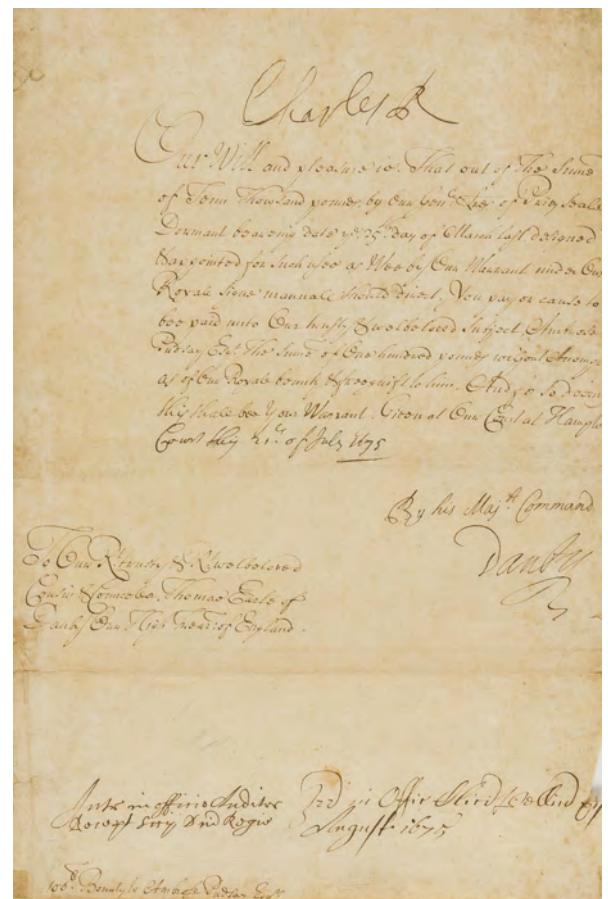 Charles R
Our Will and pleasure is. That out of the Sume
of Tenn Thousand pounds by Our Gen:ll L:res of Privy Seale
Dormant bearing date ye 25th day of March last designed
& appointed for such uses as Wee by Our Warrant under Our
Royale Signe manuale should direct, You pay or cause to
bee paid unto Our trusty & welbeloved Subject Ambrose
Pudsay Esq:r The Sume of One hundred pounds without
as of Our Royale bounty & free guift to him. And for so doeing
this shale bee Your Warrant. Given at Our Court at Hampton
Court this 21th of July 1675
By his Maj:ts Command
Danby
To Our R:t trusty & R:t welbeloved
Cousin & Councelor Thomas Earle of
Danby Our High Trear of England.
Intr in officio Auditor
Recept Regis
in Offic
August 1675
100 Bounty to Ambrose Pudsay Esq:r